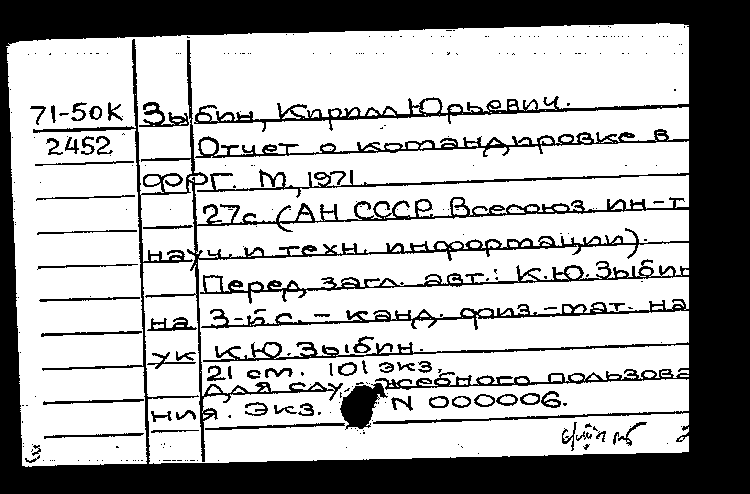 71-50К Зыбин, Кирилл Юрьевич.
2452 Отчет о командировке в
ФРГ. М., 1971.
27с. (АН СССР. Всесоюз. ин-т
науч. и техн. информации).
Перед загл. авт.: К.Ю.Зыбин
на 3-й с. – канд. физ.-мат. на
ук К.Ю.Зыбин.
21 см. 101 экз.
Для служебного пользова
ния. Экз. N 000006.